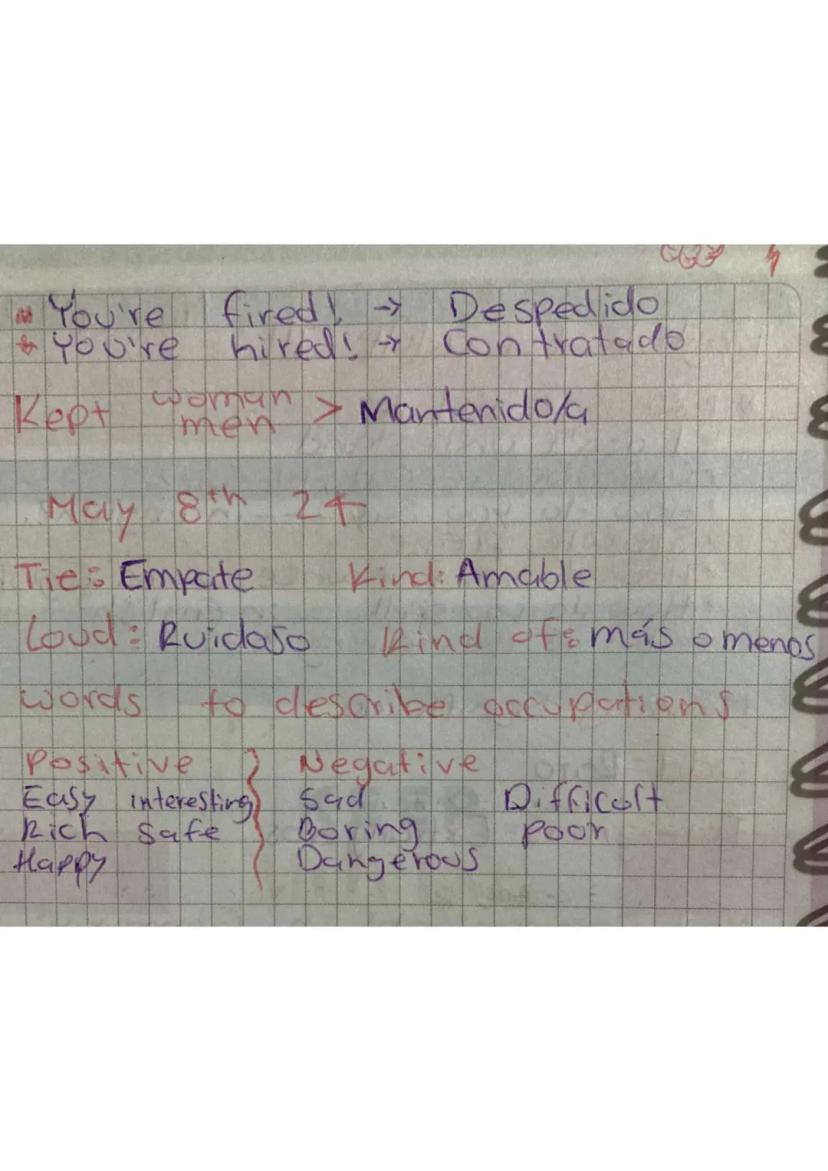 * You're fired! → Despedido
* You're hired! → Contratado
Kept woman men > Mantenido/a
May 8th 24
Tie: Empate Kind: Amable
Loud: Ruidaso Kind of: más o menos
words to describe occupations
Positive Negative
Easy interesting Sad Difficult
Rich Safe Boring poor
Happy Dangerous